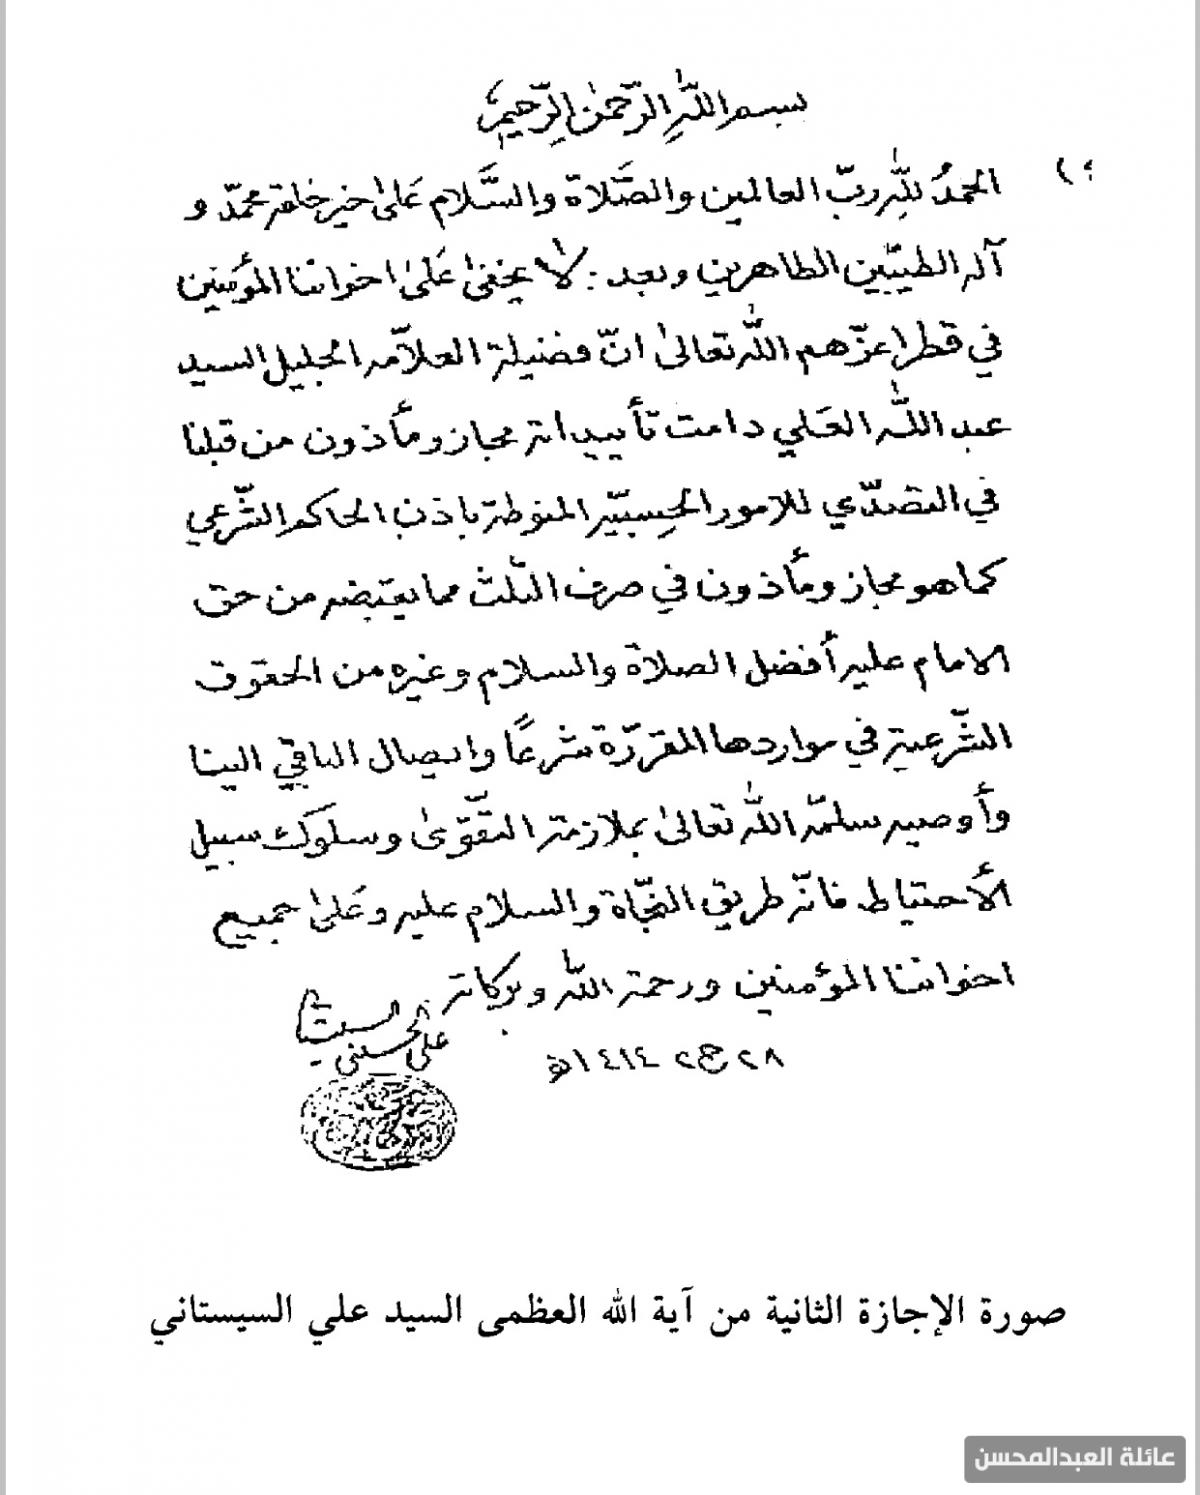 بسم اللّٰهِ الرّحمٰن الرّحيم
الحمدُ للّٰهِ ربّ العالمين والصَّلاة والسَّلام عَلىٰ خير خلقه محمّد و
آله الطيّبين الطاهرين وبعد : لا يخفىٰ عَلىٰ اخواننا المؤمنين
في قطر اعزّهم اللّٰه تعالىٰ انّ فضيلة العلاّمه الجليل السيد
عبد اللّٰه العَلي دامت تأييداته مجاز ومأذون من قبلنا
في التصدّي للامور الحِسبيّه المنوطة باذن الحاكم الشّرعي
كما هو مجاز ومأذون في صرف الثلث مما يقبضه من حق
الامام عليه أفضل الصلاة والسلام وغيره من الحقوق
الشّرعية في مواردها المقرّرة شرعًا وايصال الباقي الينا
وأوصيه سلمّه اللّٰه تعالىٰ بملازمة التّقوىٰ وسلوك سبيل
الأحتياط فانّه طريق النجّاة والسلام عليه وعَلىٰ جميع
اخواننا المؤمنين ورحمة اللّٰه وبركاته
علي الحسيني السيستاني
٢٨ ج٢ ١٤١٤هـ
صورة الإجازة الثانية من آية الله العظمى السيد علي السيستاني
عائلة العبدالمحسن